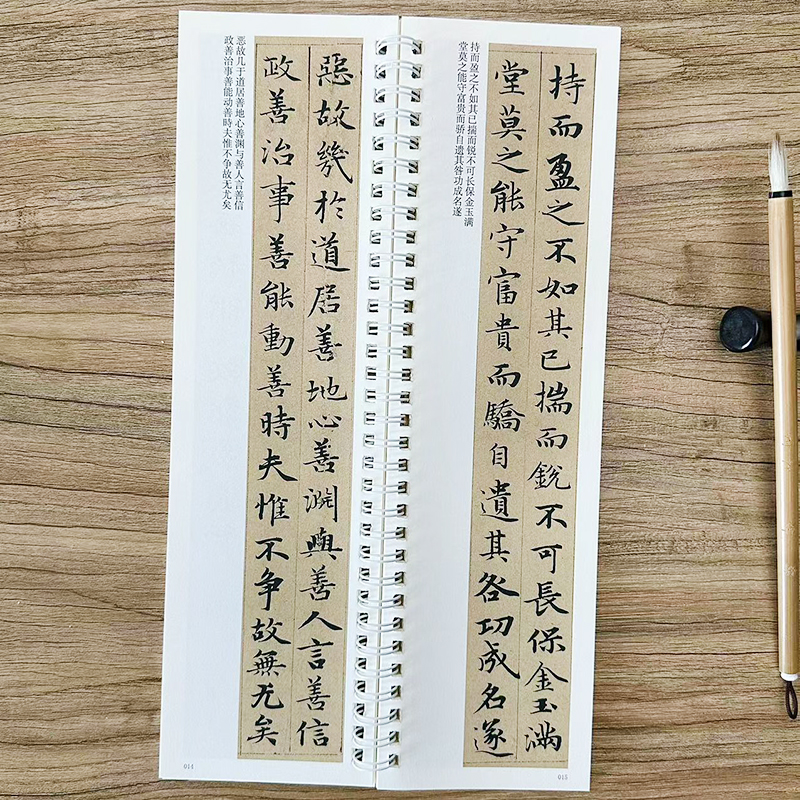 惡故幾於道居善地心善淵與善人言善信
政善治事善能動善時夫惟不争故無尤矣
恶故几于道居善地心善渊与善人言善信
政善治事善能动善時夫惟不争故无尤矣
014
持而盈之不如其已揣而銳不可長保金玉滿
堂莫之能守富貴而驕自遺其咎功成名遂
持而盈之不如其已揣而锐不可长保金玉满
堂莫之能守富贵而骄自遗其咎功成名遂
015